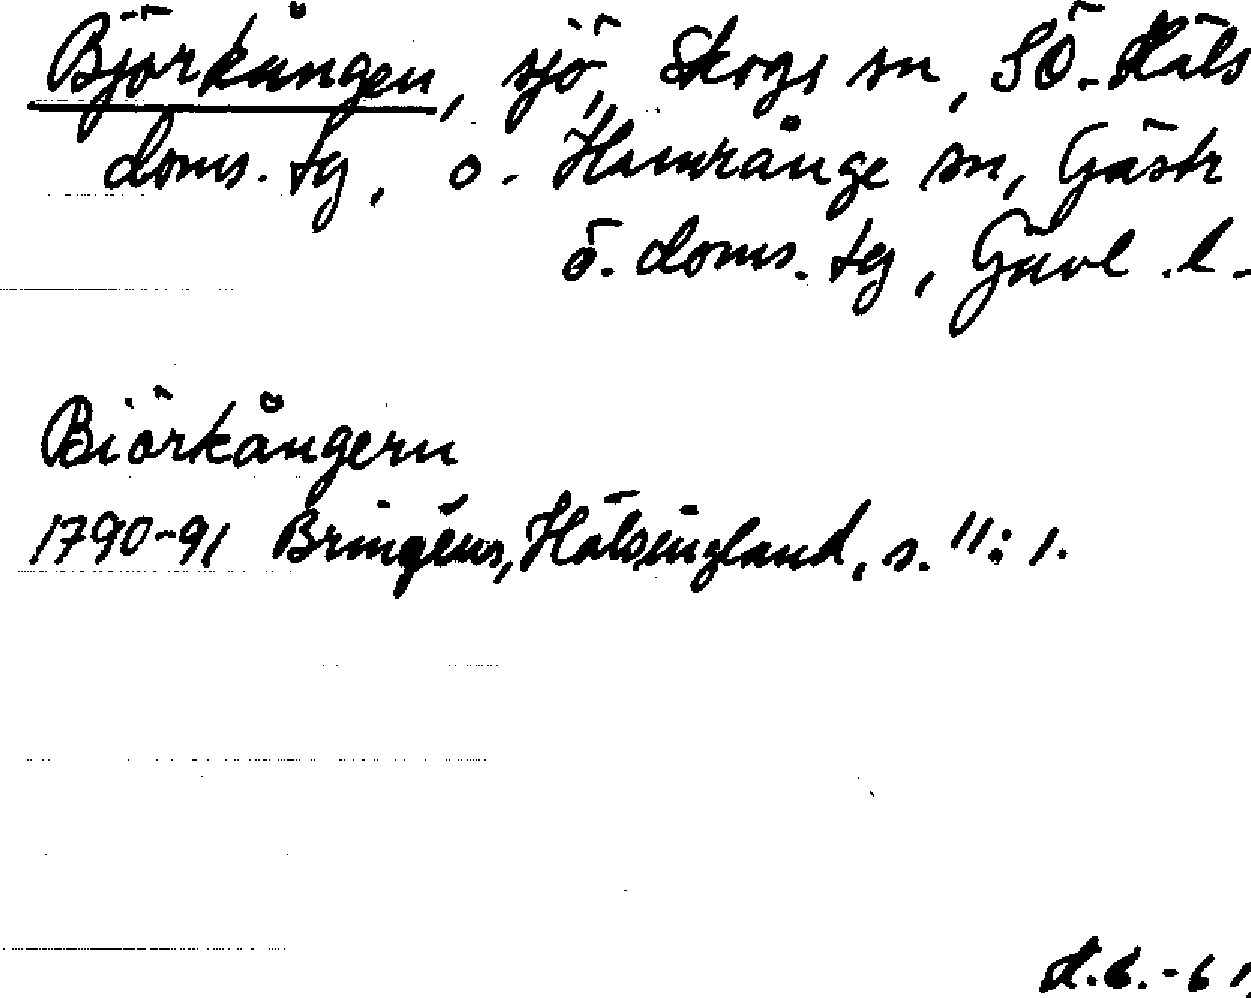 Björkången, sjö, Skogs sn, SÖ. Häls
doms. tg, o. Hamrånge sn, Gästr
ö. doms. tg, Gävl. l.
Biörkångern
1790-91 Bringéus, Hälsingland, s. 11: 1.
-61